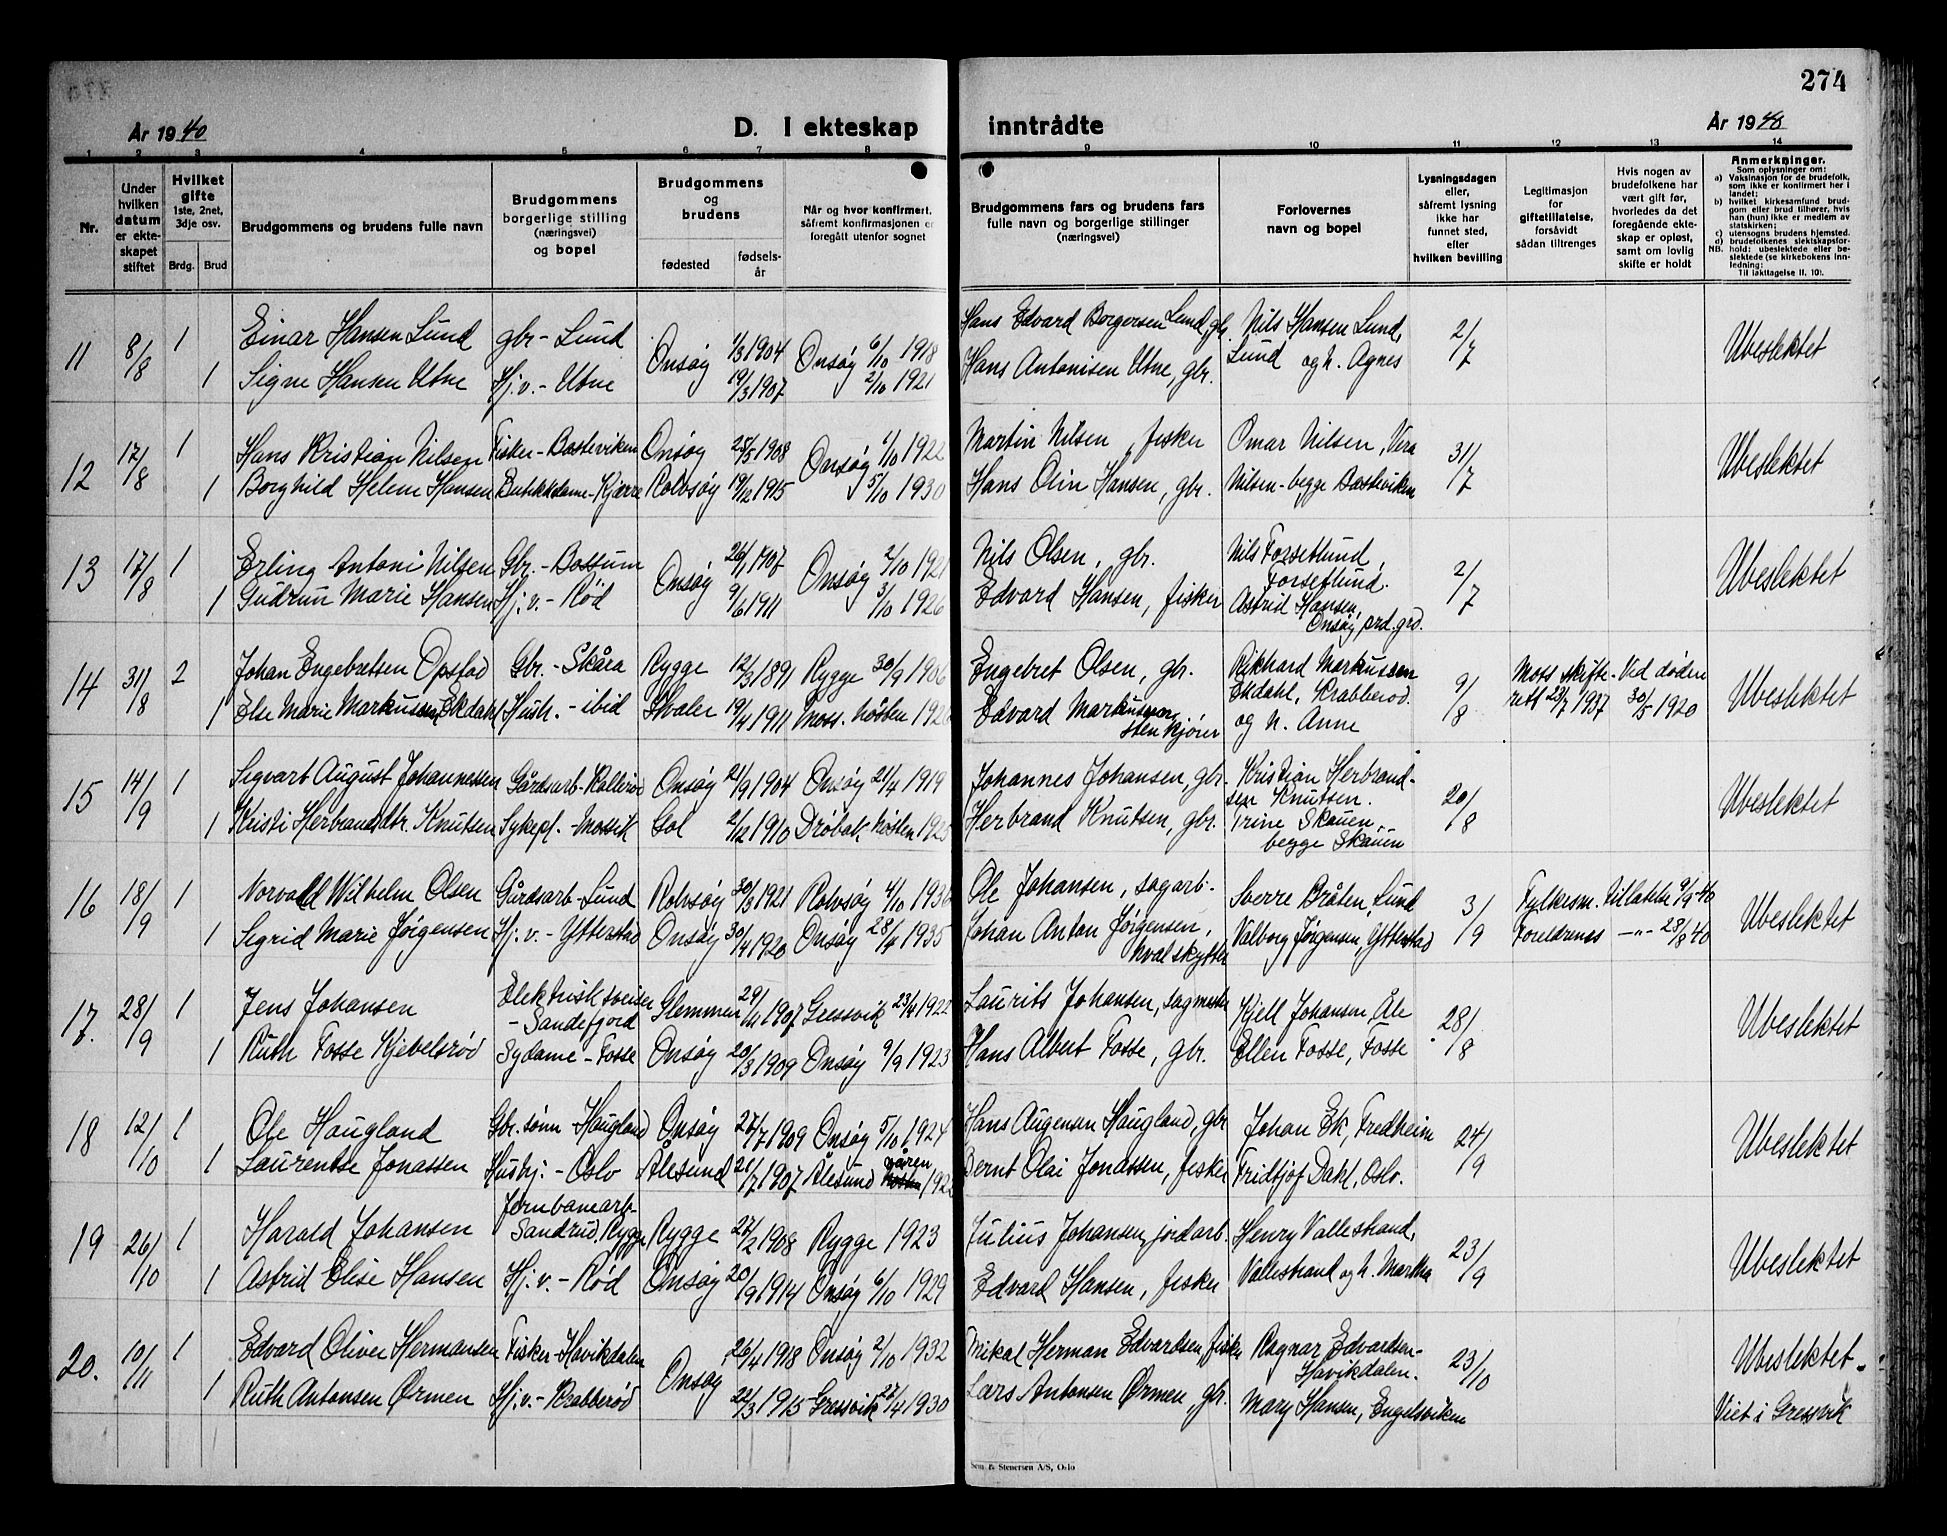 274
År 1940
D. I ekteskap
inntrådte
År 1940
1 2 3 4 5 6 7 8
9 10 11 12 13 14
Nr.
Under hvilken datum er ekteskapet stiftet
Hvilket gifte 1ste, 2net, 3dje osv.
Brdg. Brud
Brudgommens og brudens fulle navn
Brudgommens borgerlige stilling (næringsvei) og bopel
Brudgommens og brudens
fødested
fødselsår
Når og hvor konfirmert, såfremt konfirmasjonen er foregått utenfor sognet
Brudgommens fars og brudens fars fulle navn og borgerlige stillinger (næringsvei)
Forlovernes navn og bopel
Lysningsdagen eller, såfremt lysning ikke har funnet sted, efter hvilken bevilling
Legitimasjon for giftetillatelse, forsåvidt sådan tiltrenges
Hvis nogen av brudefolkene har vært gift før, hvorledes da det foregående ekteskap er opløst, samt om lovlig skifte er holdt
Anmerkninger.
Som oplysninger om:
a) Vaksinasjon for de brudefolk, som ikke er konfirmert her i landet;
b) hvilket kirkesamfund brudgom eller brud tilhører, hvis han (hun) ikke er medlem av statskirken;
c) utensogns brudens hjemsted.
d) brudefolkenes slektskapsforhold: ubeslektede eller beslektede (se kirkebokens innledning:
NB.
Til iakttagelse II, 10).
11 8/8 1 Einar Hansen Lund gbr - Lund Onsøy 1/3 1904 Onsøy 6/10 1918 Hans Edvard Borgersen Lund, gbr. Nils Hansen Lund, 2/7 Ubeslektet
1 Signe Hansen Utne Hj.v. - Utne 19/3 1907 2/10 1921 Hans Antonisen Utne, gbr. Lund og h. Agnes
12 17/8 1 Hans Kristian Nilsen Fisker - Basteviken Onsøy 25/5 1908 Onsøy 1/10 1922 Martin Nilsen, fisker Omar Nilsen, Vera 31/7 Ubeslektet
1 Borghild Helene Hansen Butikkdame - Kjærre Rolvsøy 19/12 1915 5/10 1930 Hans Olin Hansen, gbr. Nilsen - begge Basteviken
13 17/8 1 Erling Antoni Nilsen Gbr. - Bossum Onsøy 26/1 1907 Onsøy 2/10 1921 Nils Olsen, gbr. Nils Forsetlund, Forsetlund. 2/7 Ubeslektet
1 Gudrun Marie Hansen Hj.v. - Rød 9/6 1911 3/10 1926 Edvard Hansen, fisker Astrid Hansen, Onsøy prd.grd.
14 31/8 2 Johan Engebretsen Opstad Gbr. - Skåra Rygge 12/3 1891 Rygge 30/9 1906 Engebret Olsen, gbr. Rikhard Markussen 9/8 Moss skifte- Ved døden Ubeslektet
1 Else Marie Markussen Ekdahl Hush. - ibid Hvaler 19/4 1911 Moss. høsten 1926 Edvard Markussen, Stenkjører Ekdahl, Krabberød. og h. Anne rett 23/7 1937 30/5 1920
15 14/9 1 Sigvart August Johannessen Gårdsarb - Kallerød Onsøy 21/9 1904 Onsøy 21/4 1919 Johannes Johansen, gbr. Kristian Herbrand- 20/8 Ubeslektet
1 Kristi Herbrandsdtr. Knutsen Sykepl. - Mossik Gol 2/12 1910 Drøbak høsten 1925 Herbrand Knutsen, gbr. sen Knutsen. Trine Skauen, begge Skauen
16 18/9 1 Norvald Wilhelm Olsen Gårdsarb - Lund Rolvsøy 30/3 1921 Rolvsøy 4/10 1936 Ole Johansen, sagarb. Sverre Bråten, Lund 3/9 Fylkesm. tillatelse 9/9-40 Ubeslektet
1 Sigrid Marie Jørgensen Hj.v. - Ytterstad Onsøy 30/4 1920 Onsøy 28/4 1935 Johan Anton Jørgensen, hvalskytter Valborg Jørgensen, Ytterstad Foreldrenes -"- 28/8 40
17. 28/9 1 Jens Johansen Elektrisk sveiser - Sandefjord Glemmen 29/11 1907 Gressvik 23/4 1922 Laurits Johansen, sagmester Kjell Johansen, Åle 28/8 Ubeslektet
1 Ruth Fosse Kjebelsrød Sydame - Fosse Onsøy 20/3 1909 Onsøy 9/9 1923 Hans Albert Fosse, gbr. Ellen Fosse, Fosse
18 12/10 1 Ole Haugland Gbr. sønn - Haugland Onsøy 27/7 1909 Onsøy 5/10 1924 Hans Augensen Haugland, gbr Johan Ek, Fredheim 24/9 Ubeslektet
1 Laurentse Jonassen Hushj. - Oslo Ålesund 21/7 1907 Ålesund våren 1922 Bernt Olai Jonassen, fisker Fridtjof Dahl, Oslo.
19 26/10 1 Harald Johansen Jernbanearb - Sandrud, Rygge Rygge 27/2 1908 Rygge 1923 Julius Johansen, jordarb. Henry Vallestrand, 23/9 Ubeslektet
1 Astrid Elise Hansen Hj.v. - Rød Onsøy 20/9 1914 Onsøy 6/10 1929 Edvard Hansen, fisker Vallestrand og h. Martha
20. 10/11 1 Edvard Oliver Hermansen Fisker - Havikdalen Onsøy 26/4 1918 Onsøy 2/10 1932 Mikal Herman Edvardsen, fisker Ragnar Edvardsen - Havikdalen. 23/10 Ubeslektet.
1 Ruth Antonsen Ørmen Hj.v. - Krabberød 22/3 1915 Gressvik 27/4 1930 Lars Antonsen Ørmen, gbr. Mary Hansen, Engelsviken Viet i Gressvik
Sem & Stenersen A/S, Oslo